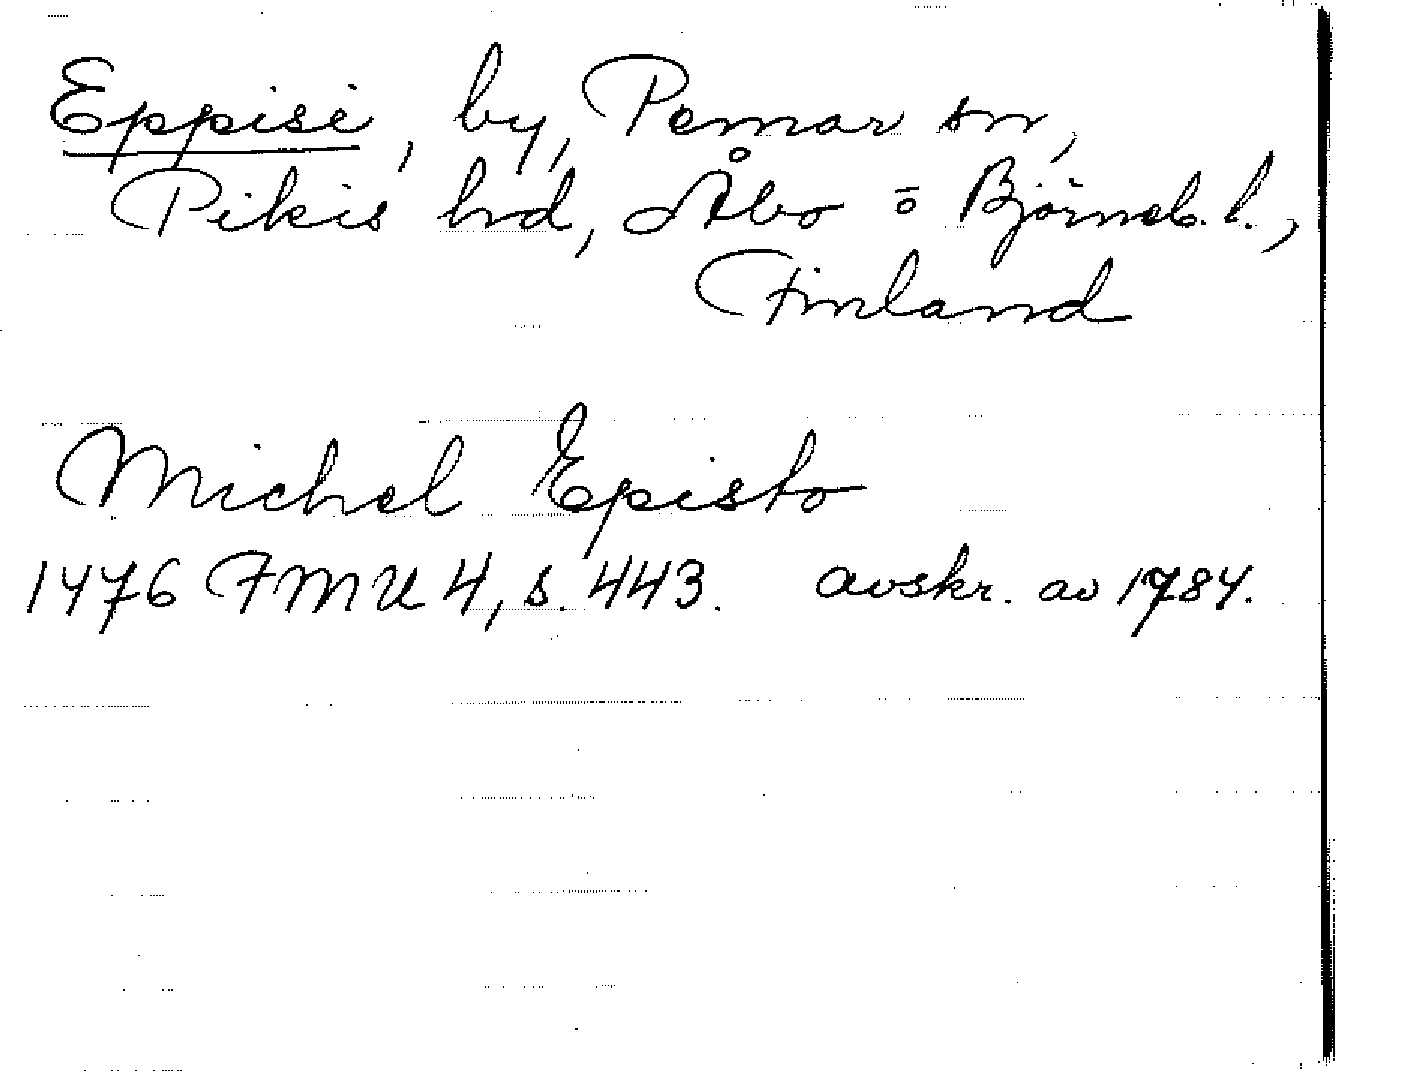 Eppisi, by, Pemar sn,
Pikis hd, Åbo o Björneb. l.,
Finland
Michel Episto
1476 FMU 4, s. 443. avskr. av 1784.